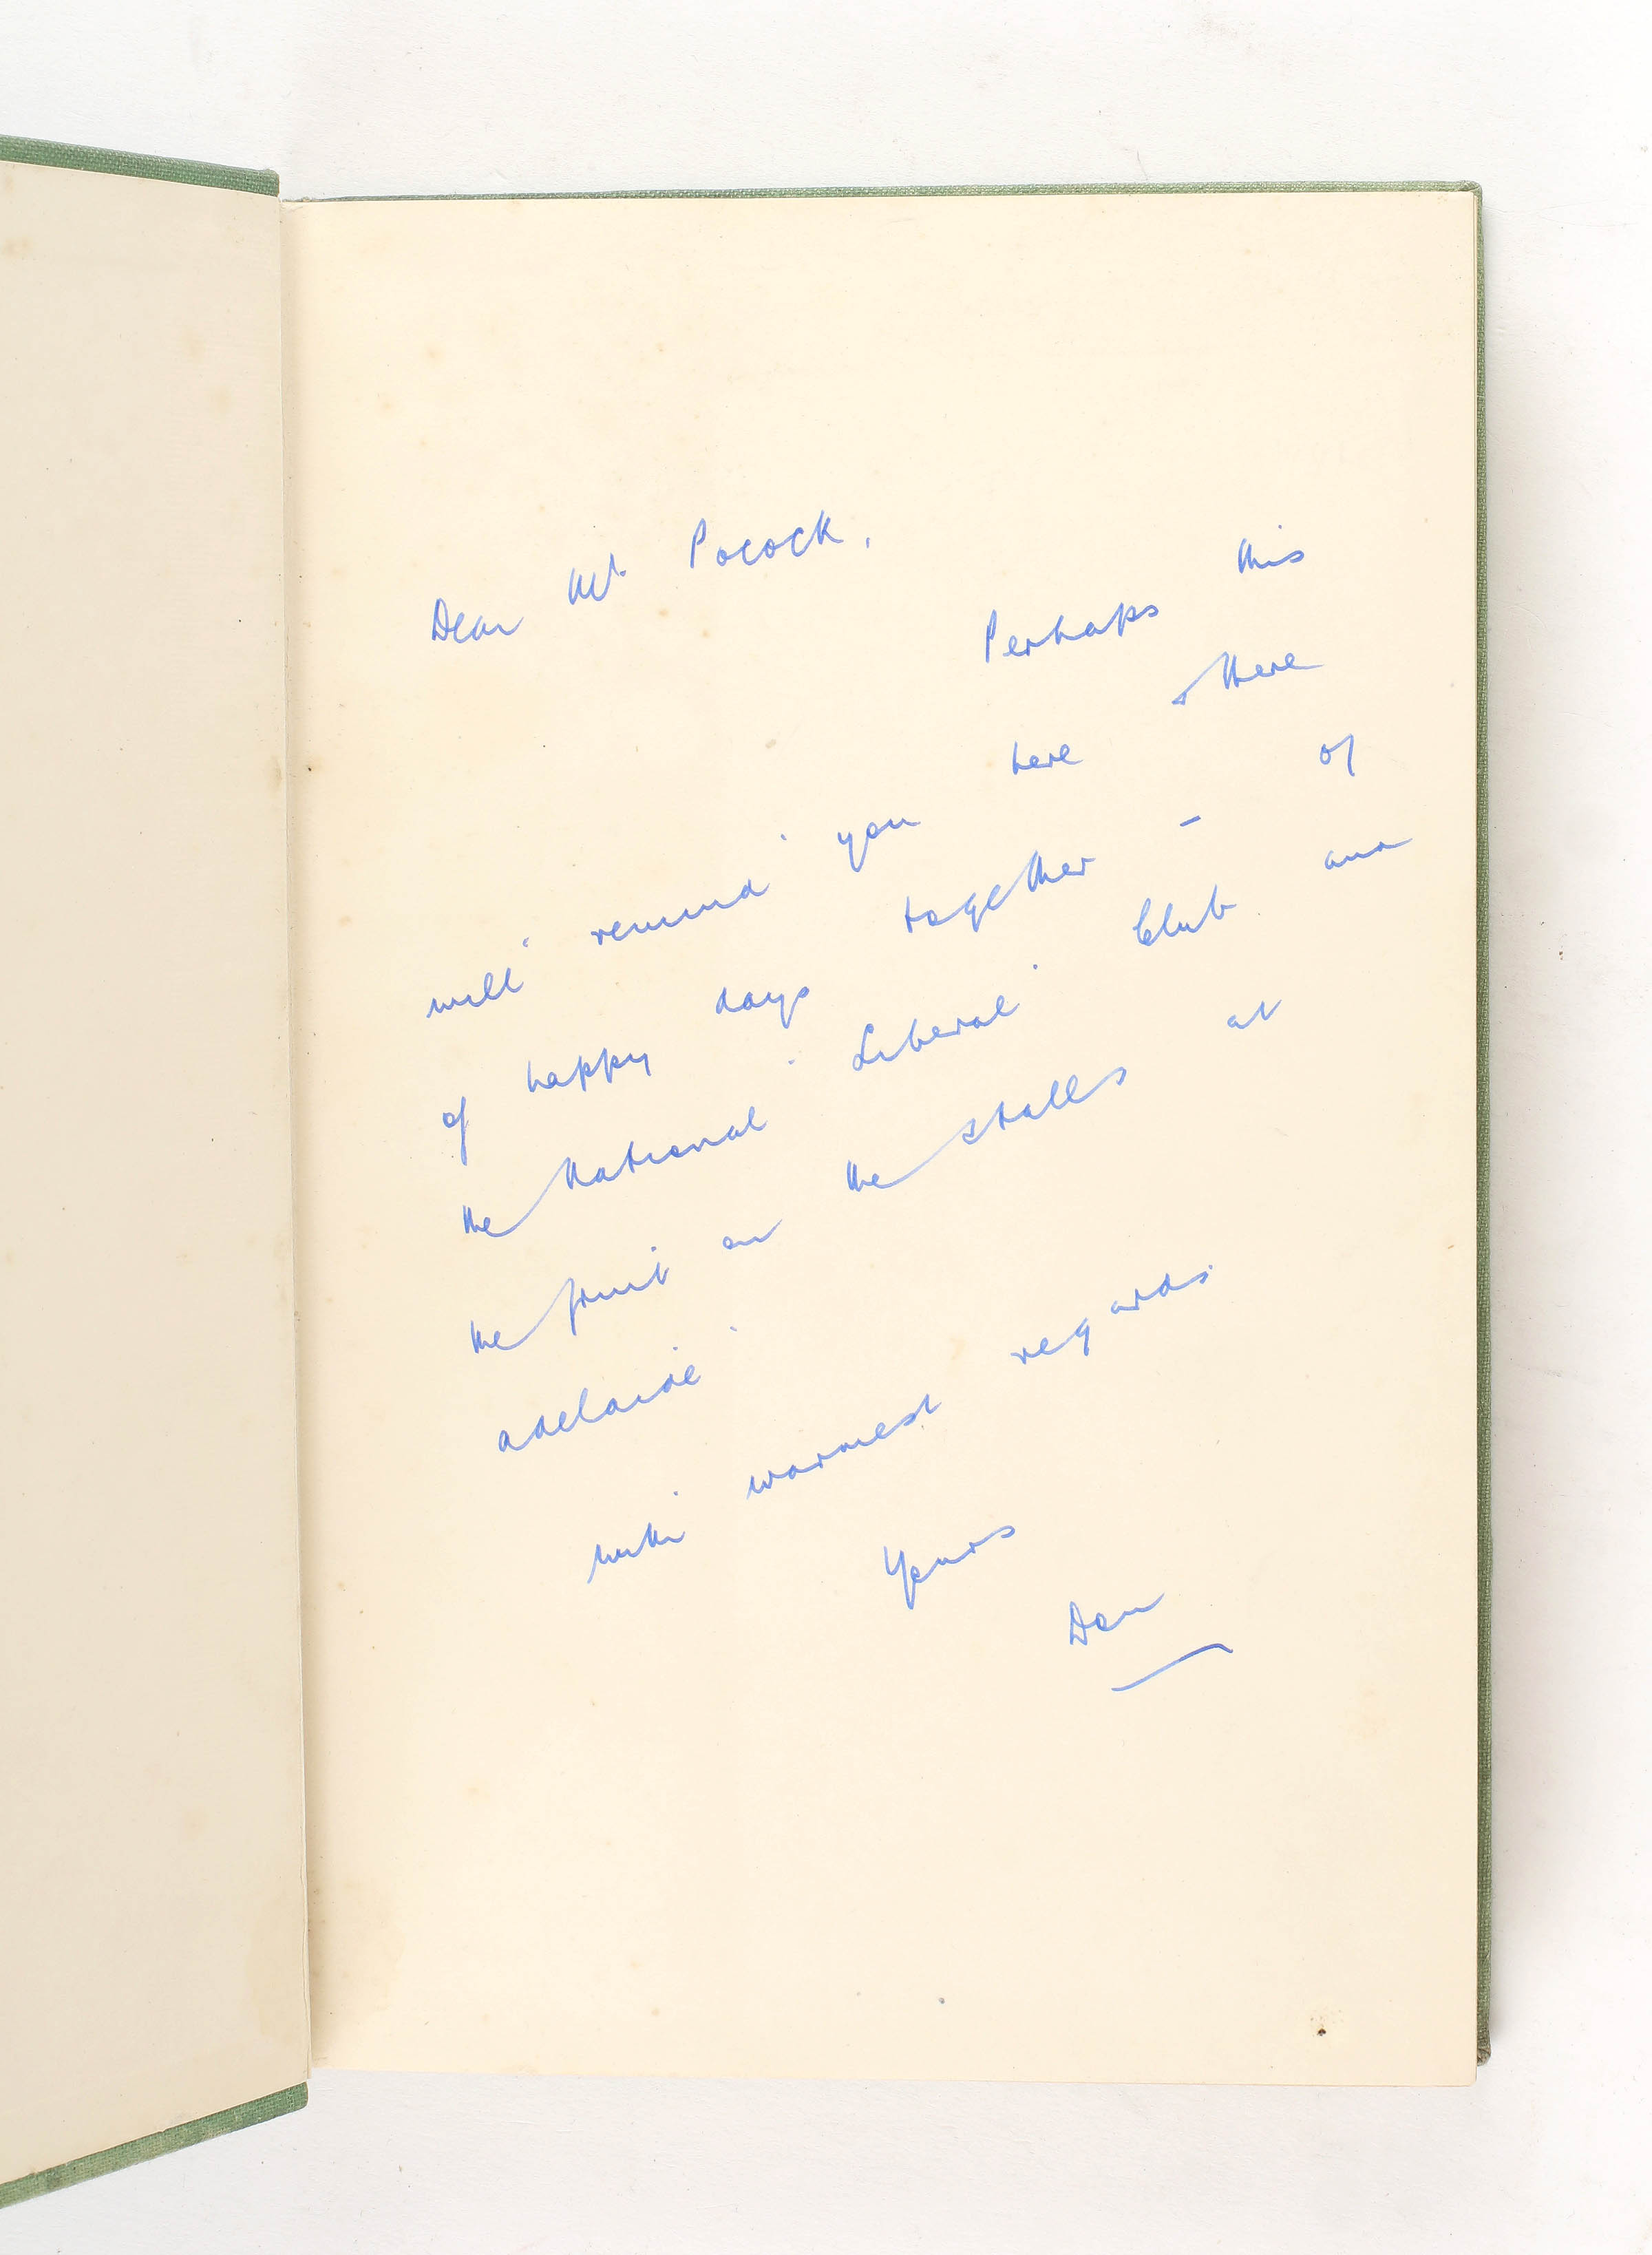 Dear Mr. Pocock,
Perhaps this
will remind you here & there
of happy days together - of
the National Liberal Club and
the fruit on the stalls at
adelaide.
with warmest regards
Yours
Don